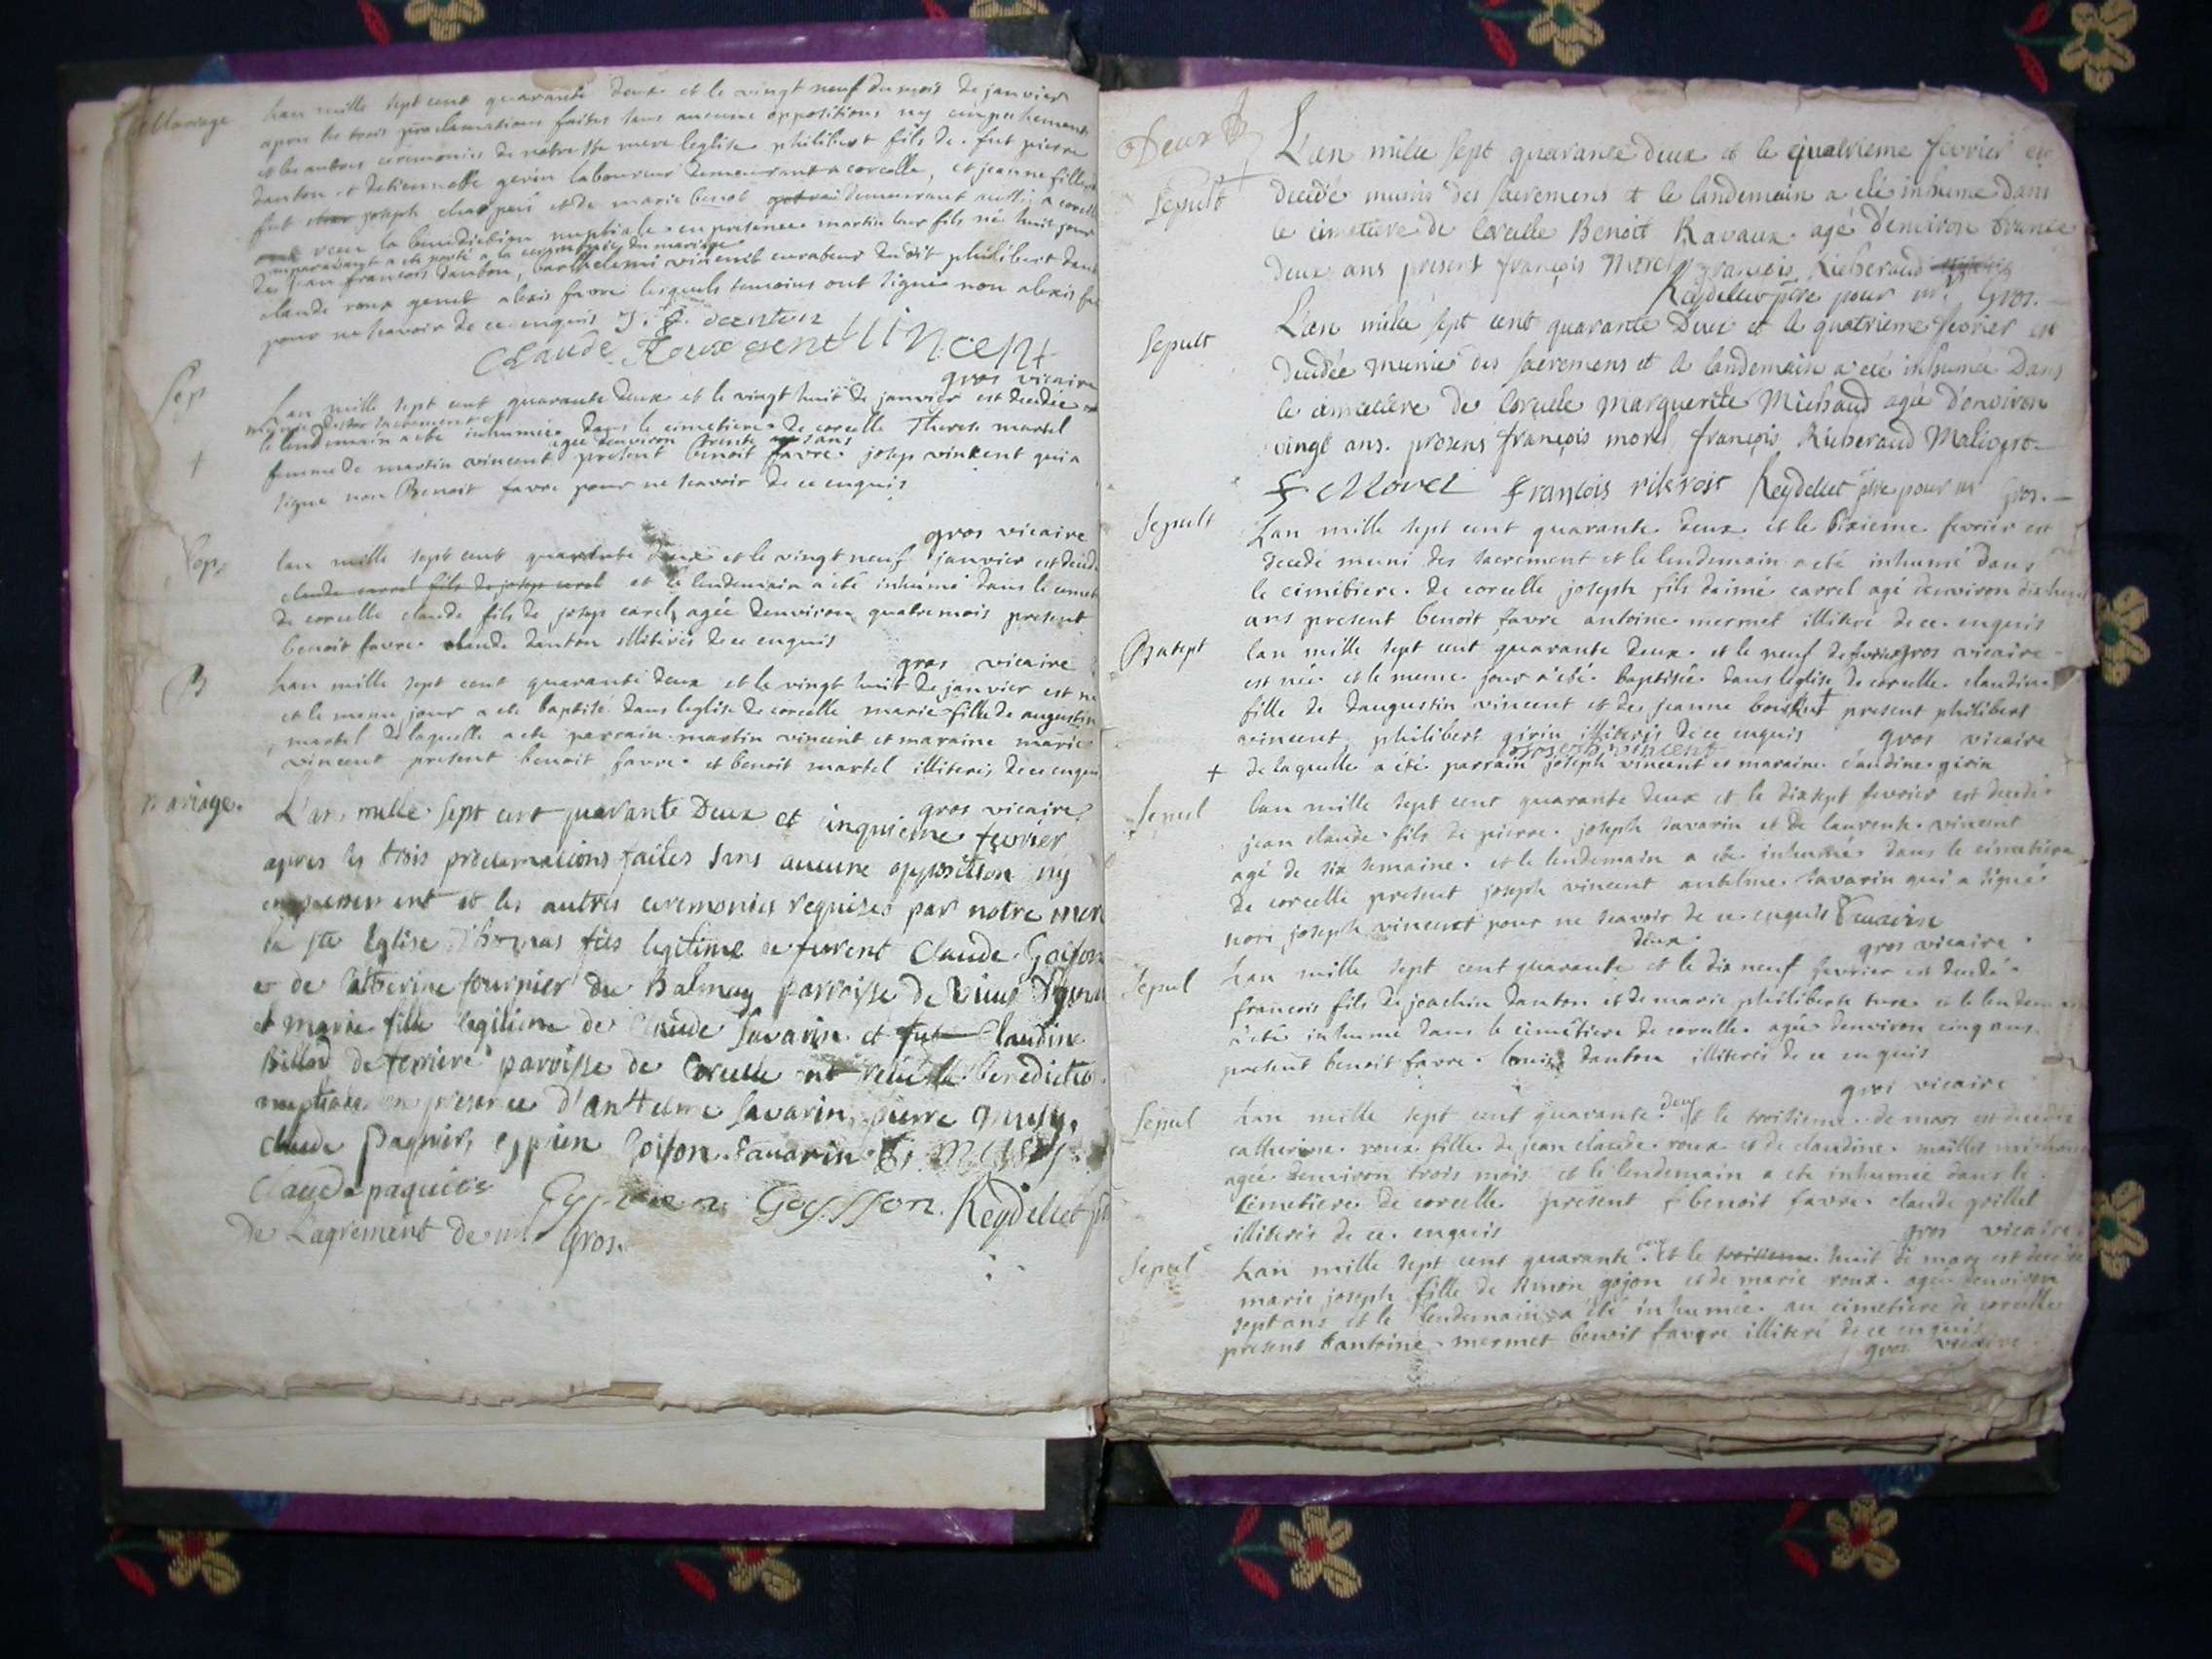 Mariage
Lan mille sept cent quarante deux et le vingt neuf du mois de janvier
apres les trois proclamations faites sans aucune oppositions ny empechement
et les autres ceremonies de notre ste mere leglise philibert fils de fut pierre
danton et detiennette girin laboureur demeurant a corcelle, et jeanne fille de
fut joseph charpui et de marie benoit demeurant aussi a corcelle
ont recu la benediction nuptiale en presence martin leur fils né huit jour
auparavant a été porté a la ceremonie du mariage
de jean francois danton, barthelemi vincent curateur du dit philibert danton
claude roux genet alexis favre lesquels temoins ont signé non alexis fav
pour ne scavoir de ce enquis J. f. danton
Claude Roux genet Vincent
gros vicaire
Sep
Lan mille sept cent quarante deux et le vingt huit de janvier est decedée
munie des sacrement et
le lendemain a ete inhumée dans le cimetiere de corcelle Therese martel
agée denviron trente ans
femme de martin vincent present benoit favre josep vincent qui a
signe non Benoit favre pour ne scavoir de ce enquis
gros vicaire
Sep
lan mille sept cent quarante deux et le vingt neuf janvier est decede
claude carrel fils de josep carel et le lendemain a eté inhumé dans le cimet
de corcelle claude fils de josep carel, agée denviron quatre mois present
benoit favre claude danton illiterés de ce enquis
gros vicaire
B
Lan mille sept cent quarante deux et le vingt huit de janvier est né
et le meme jour a ete baptisé dans leglise de corcelle marie fille de augustin
martel de laquelle a ete parrain martin vincent et maraine marie
vincent present benoit favre et benoit martel illiterés de ce enquis
gros vicaire
mariage.
L'an mille sept cent quarante Deux et cinquieme fevrier
apres les trois proclamations faites sans aucune opposition ny
empechement et les autres ceremonies requises par notre mere
la ste Eglise Thomas fils legitime de furent Claude Goison
et de Catherine fournier du Balmay parroisse de Vieux
et marie fille legitime de Claude Savarin et fut Claudine
Billod de ferriere parroisse de Corcelle ont reçu la benediction
nuptiale en presence d'anthelme Savarin, pierre
Claude Paquier, Cyprien Goison. Savarin
Claude paquier Cyprien Goysson. Keydellet
de L'agrement de mr Gros.
Deux
Sepult
L'an mille sept quarante deux et le quatrieme fevrier est
decedé munis des sacremens et le landemain a eté inhumé dans
le cimetiere de Corcelle Benoit Ravaux agé d'environ trente
deux ans present françois Morel françois Richeraud
Keydellet ptre pour mr Gros.
Sepult
L'an mille sept cent quarante Deux et le quatrieme fevrier est
decedée munie des sacremens et le landemain a eté inhumée Dans
le cimetiere de Corcelle Marguerite Michaud agée d'environ
vingt ans. presens françois morel françois Richeraud
F Morel François Keydellet ptre pour mr Gros.
Sepult
Lan mille sept cent quarante deux et le sixieme fevrier est
decedé muni des sacrement et le lendemain a eté inhumé dans
le cimitiere de corcelle joseph fils daimé carrel agé denviron dix huit
ans present benoit favre antoine mermet illiteré de ce enquis
gros vicaire
Batept
lan mille sept cent quarante deux et le neuf de fevrier
est née et le meme jour a été baptisée dans leglise de corcelle claudine
fille de daugustin vincent et de jeanne present philibert
vincent philibert girin illiterés de ce enquis gros vicaire
joseph vincent
+ de laquelle a été parrain joseph vincent et maraine claudine girin
Sepul
lan mille sept cent quarante deux et le dix sept fevrier est decedé
jean claude fils de pierre joseph savarin et de laurence vincent
agé de six semaine et le lendemain a ete inhumé dans le cimetiere
de corcelle present joseph vincent antelme savarin qui a signé
non joseph vincent pour ne scavoir de ce enquis
gros vicaire
Sepul
deux
Lan mille sept cent quarante et le dix neuf fevrier est decedé
francois fils de joachin danton et de marie philiberte et le lendemain
a été inhumé dans le cimetiere de corcelle agée denviron cinq ans
present benoit favre louis danton illiterés de ce enquis
gros vicaire
Sepul
Lan mille sept cent quarante deux et le troisieme de mars est decedée
catherine roux fille de jean claude roux et de claudine maillet
agée denviron trois mois et le lendemain a ete inhumée dans le
cimetiere de corcelle present benoit favre claude grillet
illiterés de ce enquis
gros vicaire
Sepul
Lan mille sept cent quarante deux et le troisieme huit de mars est decedée
marie joseph fille de simon gojon et de marie roux agée denviron
sept ans et le lendemain a été inhumée au cimetiere de corcelle
present antoine mermet benoit favre illiteré de ce enquis
gros vicaire